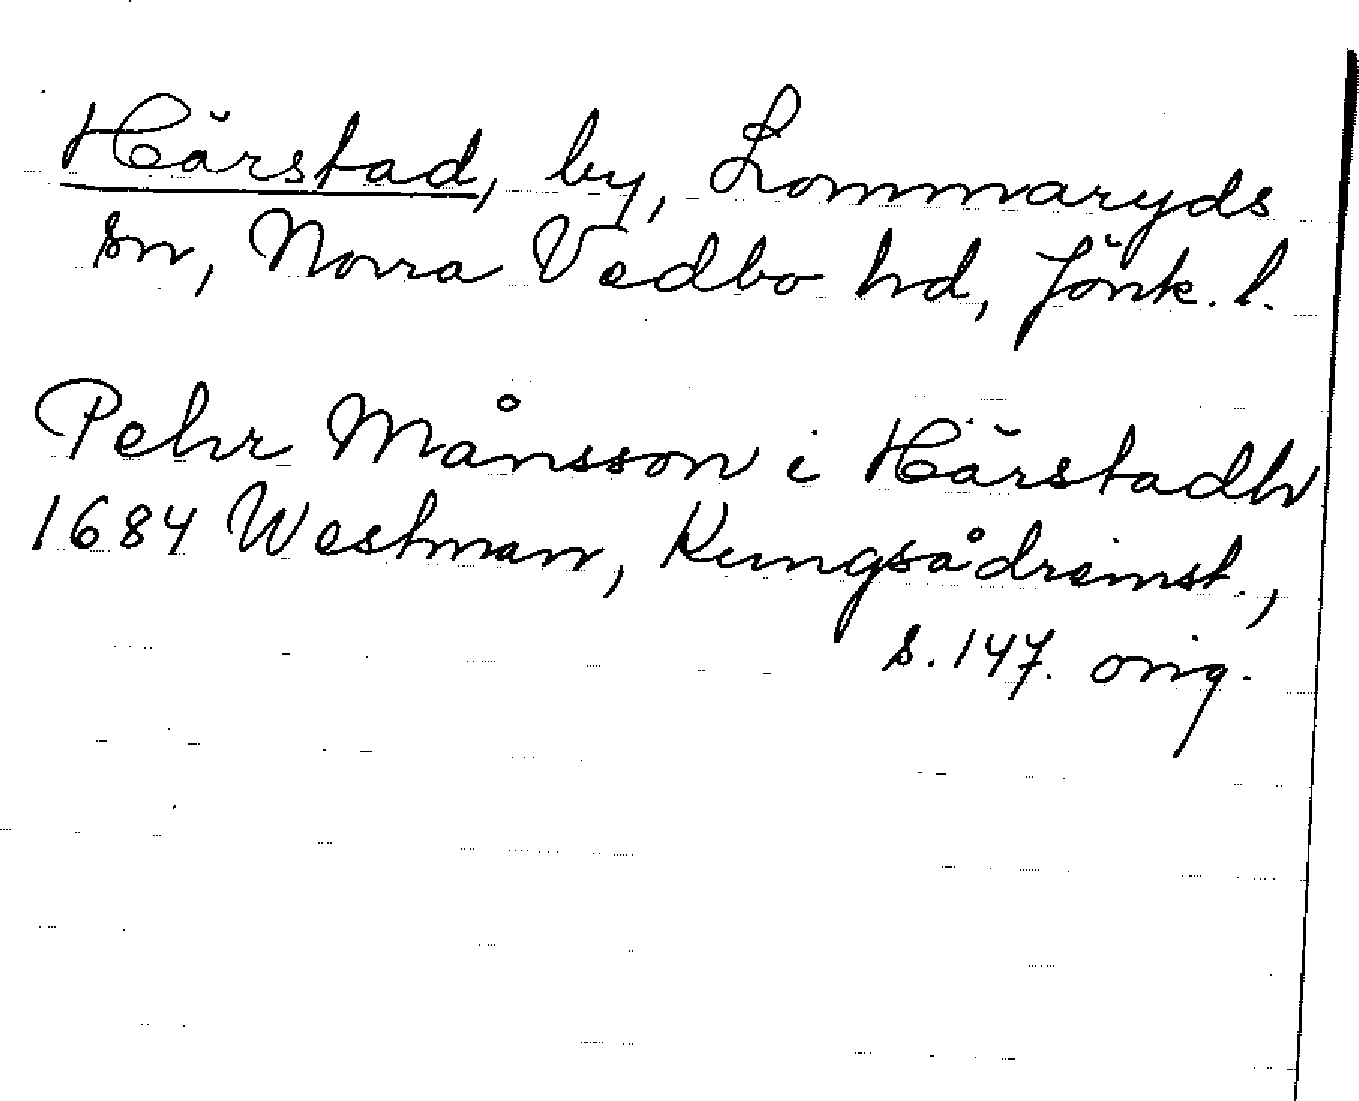 Härstad, by, Lommaryds
sn, Norra Vedbo hd, Jönk. l.
Pehr Månsson i Härstadh
1684 Westman, Kungsådreinst.,
s. 147. orig.